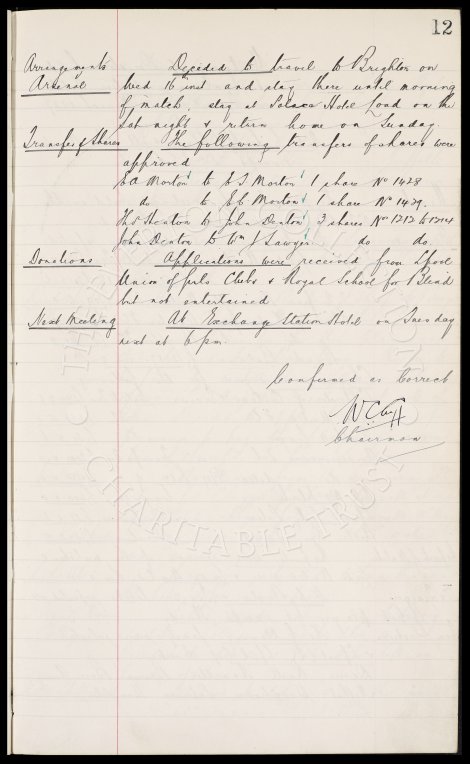 12
Arrangements Decided to travel to Brighton on
Arsenal Wed 16 inst and stay there until morning
of match, stay at Hotel Lond on the
Sat night & return home on Sunday
Transfer of Shares The following transfers of shares were
approved
E A Morton to E S Morton 1 share No 1428
do to E C Morton 1 share No 1429.
Thos Heaton to John Denton 3 shares No 1212 to 1214
John Denton to Wm J Sawyer do do.
Donations Applications were received from Lpool
Union of Girls Clubs & Royal School for Blind
but not entertained
Next Meeting At Exchange Station Hotel on Tuesday
next at 6 pm.
Confirmed as Correct
W C Cuff
Chairman
THE EVERTON COLLECTION CHARITABLE TRUST